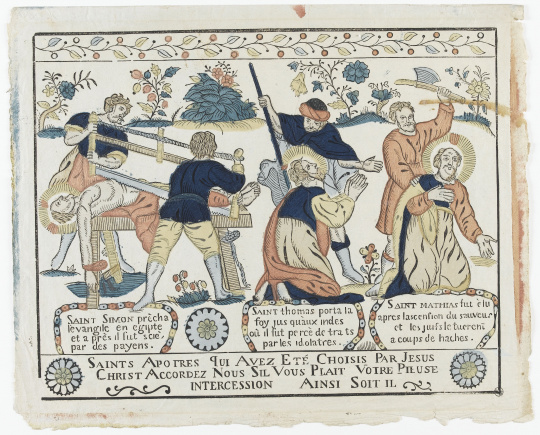 SAINT SIMON prècha
levangile en egipte
et a près il fut scié
par des payens.
SAINT thomas porta la
foy jus quàux indes
où il fut percè de traits
par les idolatres.
SAINT MATHIAS fut élu
apres lacension du sauveur
et les juifs le tuerent
a coups de haches.
SAINTS APOTRES QUI AVEZ ETÉ CHOISIS PAR JESUS
CHRIST ACCORDEZ NOUS SIL VOUS PLAIT VOTRE PIEUSE
INTERCESSION AINSI SOIT IL.